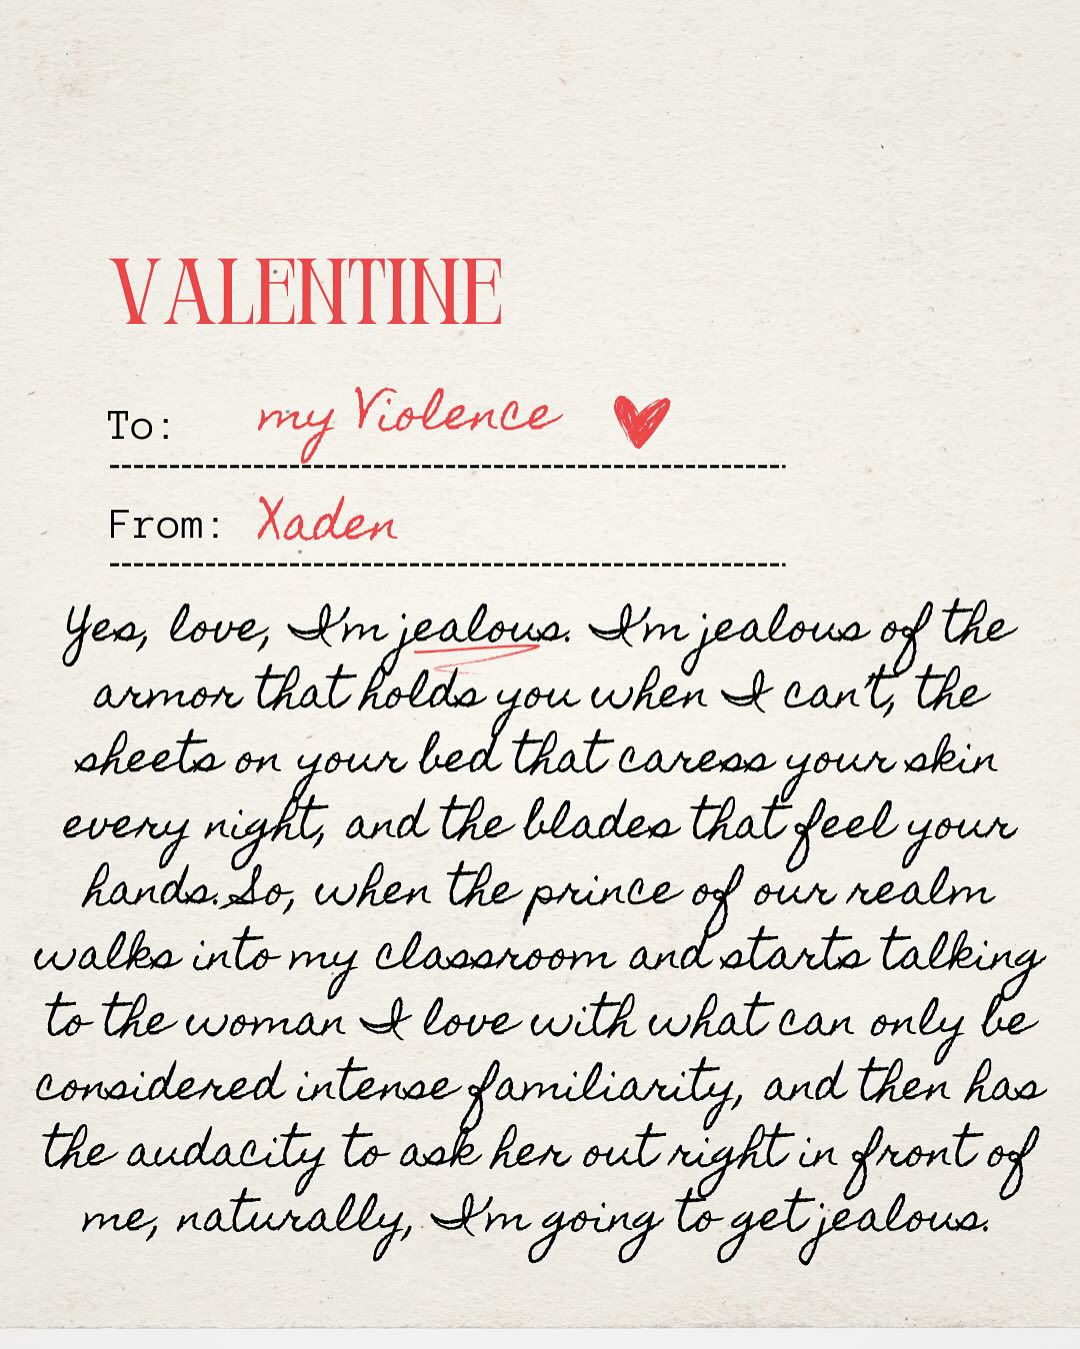 VALENTINE
To: my Violence
From: Xaden
Yes, love, I'm jealous. I'm jealous of the
armor that holds you when I can't, the
sheets on your bed that caress your skin
every night, and the blades that feel your
hands. So, when the prince of our realm
walks into my classroom and starts talking
to the woman I love with what can only be
considered intense familiarity, and then has
the audacity to ask her out right in front of
me, naturally, I'm going to get jealous.